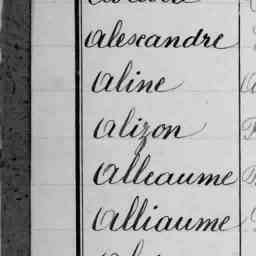 Alexandre
Aline
Alizon
Alleaume
Alliaume